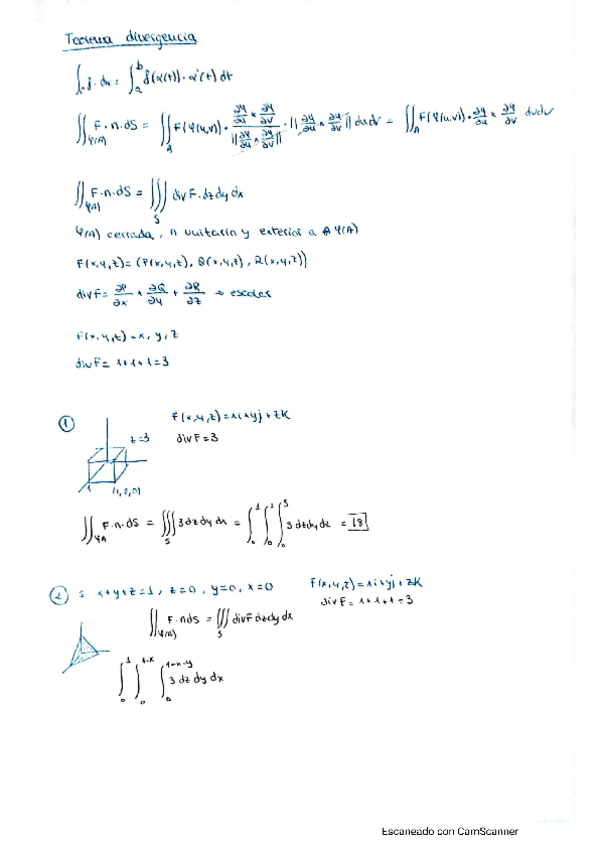 Teorema divergencia
∫ f·dα = ∫_a^b f(α(t))·α'(t) dt
∬_φ(A) F·n·dS = ∬_A F(φ(u,v)) · (∂φ/∂u × ∂φ/∂v)/||∂φ/∂u × ∂φ/∂v|| · ||∂φ/∂u × ∂φ/∂v|| du dv = ∬_A F(φ(u,v)) · ∂φ/∂u × ∂φ/∂v du dv
∬_φ(A) F·n·dS = ∭_S div F·dz dy dx
φ(A) cerrada, n unitario y exterior a φ(A)
F(x,y,z) = (P(x,y,z), Q(x,y,z), R(x,y,z))
div F = ∂P/∂x + ∂Q/∂y + ∂R/∂z → escalar
F(x,y,z) = x, y, z
div F = 1+1+1 = 3
① F(x,y,z) = xi + yj + zK
z=3 div F = 3
1 (1,2,0)
∬_φ(A) F·n·dS = ∭_S 3 dz dy dx = ∫_0^1 ∫_0^2 ∫_0^3 3 dz dy dx = 18
② S x+y+z=1, z=0, y=0, x=0 F(x,y,z) = xi + yj + zK
div F = 1+1+1 = 3
∬_φ(A) F·n dS = ∭_S div F dz dy dx
∫_0^1 ∫_0^1-x ∫_0^1-x-y 3 dz dy dx
Escaneado con CamScanner